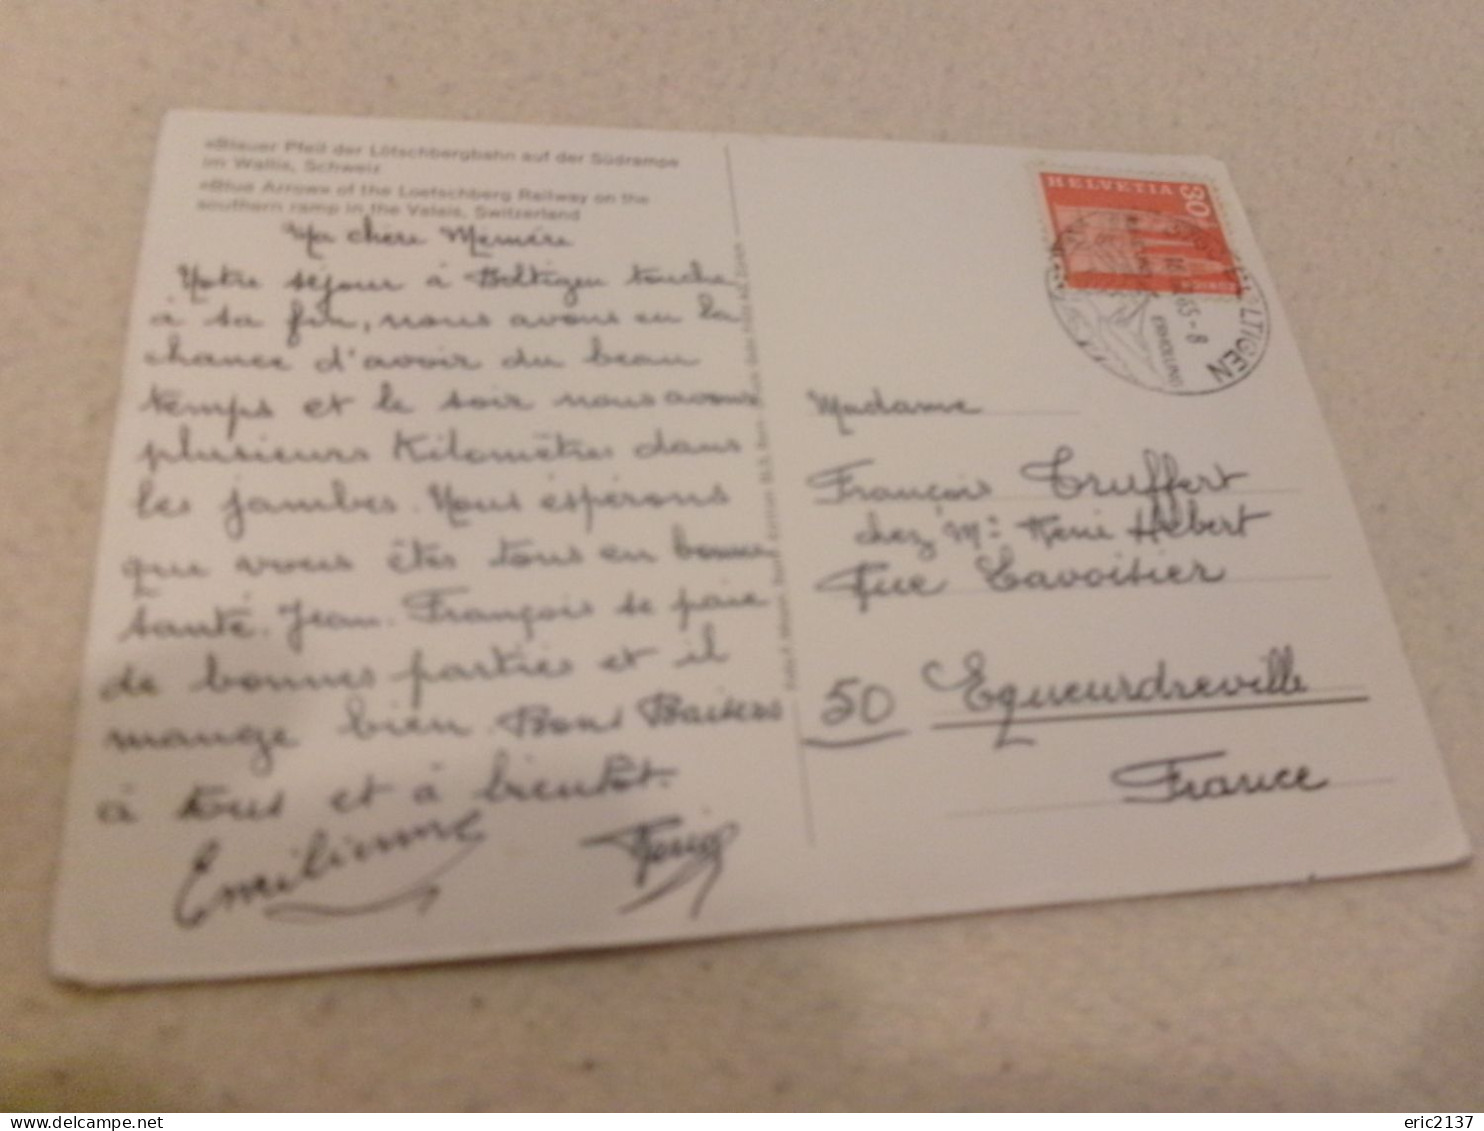 «Blauer Pfeil der Lötschbergbahn auf der Südrampe
im Wallis, Schweiz
«Blue Arrow» of the Loetschberg Railway on the
southern ramp in the Valais, Switzerland
Ma chère Mémère
Notre séjour à Boltigen touche
à sa fin, nous avons eu la
chance d'avoir du beau
temps et le soir nous avons
plusieurs Kilomètres dans
les jambes. Nous éspérons
que vous êtes tous en bonne
santé. Jean-François se paie
de bonnes parties et il
mange bien. Bons Baisers
à tous et à bientôt.
Emilienne
HELVETIA
30
BOLTIGEN
65-8
ERHOLUNG
Madame
François Truffert
chez Mr René Hébert
Rue Lavoisier
50 Equeurdreville
France
eric2137